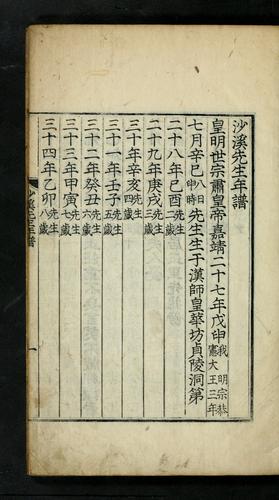 沙溪先生年譜
皇明世宗肅皇帝嘉靖二十七年戊申我 明宗恭憲大王三年
七月辛巳八日申時先生生于漢師皇華坊貞陵洞第
二十八年己酉先生二歲
二十九年庚戌先生三歲
三十年辛亥先生四歲
三十一年壬子先生五歲
三十二年癸丑先生六歲
三十三年甲寅先生七歲
三十四年乙卯先生八歲
沙溪先生年譜
一